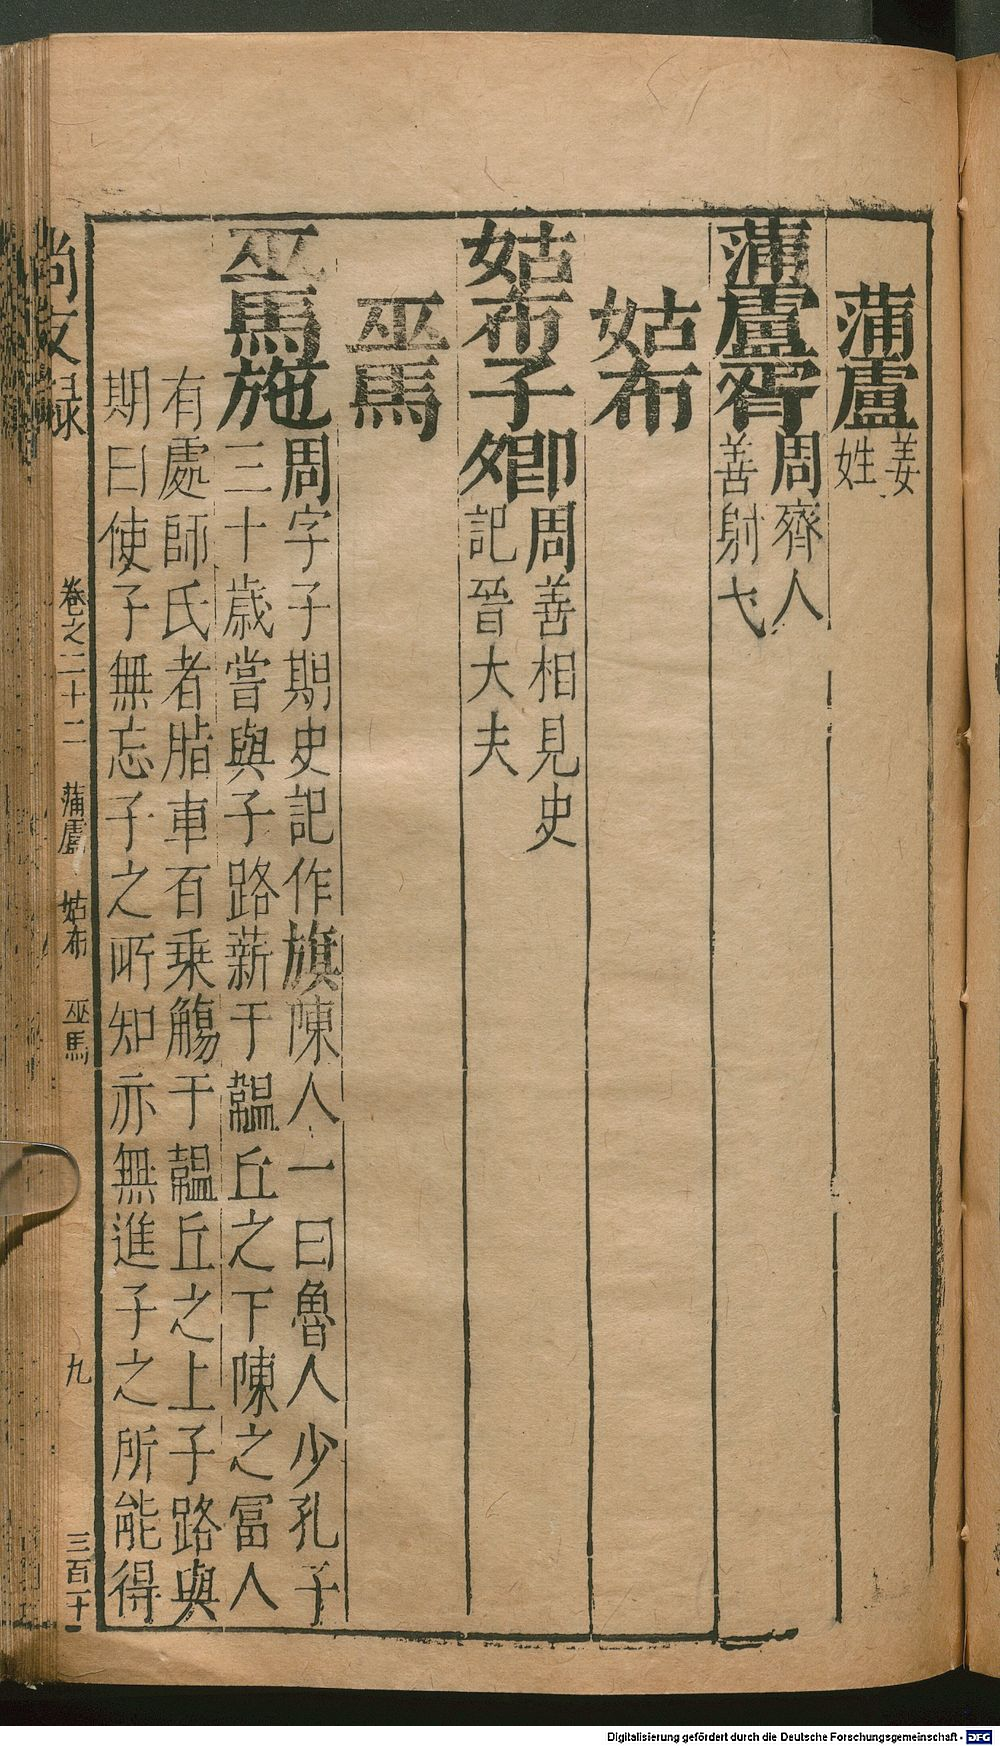 蒲盧 姜
姓
蒲盧胥 周齊人
善射弋
姑布
姑布子卿 周善相見史
記晉大夫
巫馬
巫馬施 周字子期史記作旗陳人一曰魯人少孔子
三十歲嘗與子路薪于韞丘之下陳之冨人
有處師氏者脂車百乗觴于韞丘之上子路與
期曰使子無忘子之所知亦無進子之所能得
尚友録 卷之二十二 蒲盧 姑布 巫馬 九 三百十
Digitalisierung gefördert durch die Deutsche Forschungsgemeinschaft - DFG